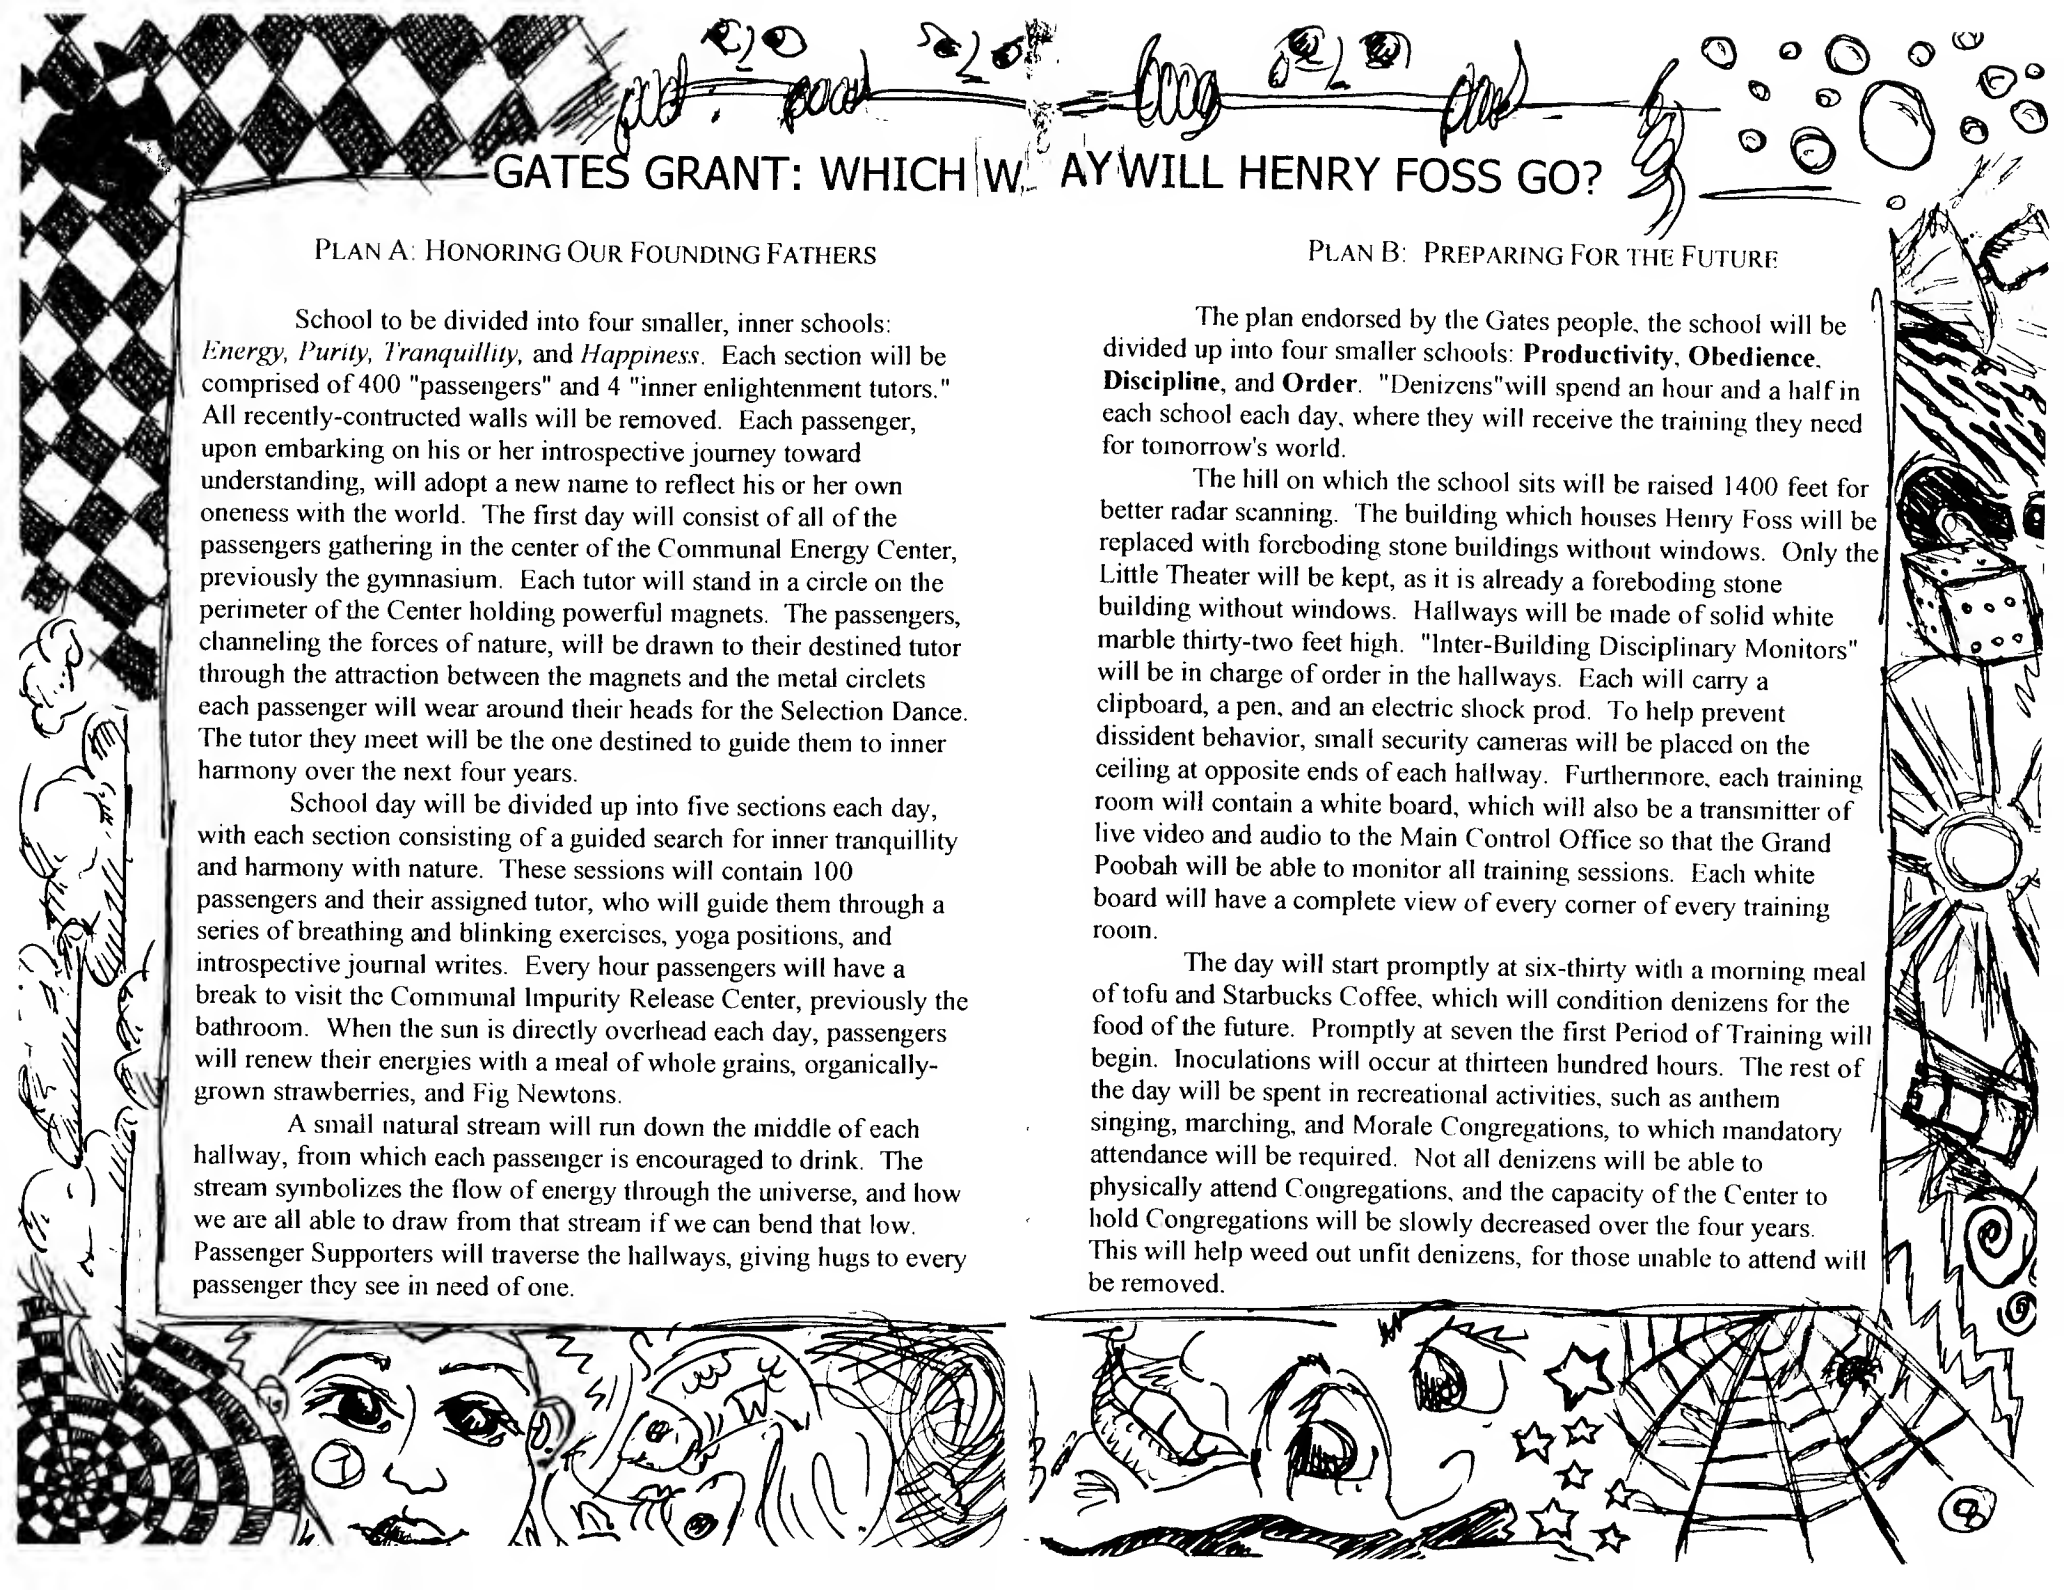 GATES GRANT: WHICH WAY WILL HENRY FOSS GO?
PLAN A: HONORING OUR FOUNDING FATHERS
School to be divided into four smaller, inner schools:
Energy, Purity, Tranquillity, and Happiness. Each section will be
comprised of 400 "passengers" and 4 "inner enlightenment tutors."
All recently-contructed walls will be removed. Each passenger,
upon embarking on his or her introspective journey toward
understanding, will adopt a new name to reflect his or her own
oneness with the world. The first day will consist of all of the
passengers gathering in the center of the Communal Energy Center,
previously the gymnasium. Each tutor will stand in a circle on the
perimeter of the Center holding powerful magnets. The passengers,
channeling the forces of nature, will be drawn to their destined tutor
through the attraction between the magnets and the metal circlets
each passenger will wear around their heads for the Selection Dance.
The tutor they meet will be the one destined to guide them to inner
harmony over the next four years.
School day will be divided up into five sections each day,
with each section consisting of a guided search for inner tranquillity
and harmony with nature. These sessions will contain 100
passengers and their assigned tutor, who will guide them through a
series of breathing and blinking exercises, yoga positions, and
introspective journal writes. Every hour passengers will have a
break to visit the Communal Impurity Release Center, previously the
bathroom. When the sun is directly overhead each day, passengers
will renew their energies with a meal of whole grains, organically-
grown strawberries, and Fig Newtons.
A small natural stream will run down the middle of each
hallway, from which each passenger is encouraged to drink. The
stream symbolizes the flow of energy through the universe, and how
we are all able to draw from that stream if we can bend that low.
Passenger Supporters will traverse the hallways, giving hugs to every
passenger they see in need of one.
PLAN B: PREPARING FOR THE FUTURE
The plan endorsed by the Gates people, the school will be
divided up into four smaller schools: Productivity, Obedience,
Discipline, and Order. "Denizens"will spend an hour and a half in
each school each day, where they will receive the training they need
for tomorrow's world.
The hill on which the school sits will be raised 1400 feet for
better radar scanning. The building which houses Henry Foss will be
replaced with foreboding stone buildings without windows. Only the
Little Theater will be kept, as it is already a foreboding stone
building without windows. Hallways will be made of solid white
marble thirty-two feet high. "Inter-Building Disciplinary Monitors"
will be in charge of order in the hallways. Each will carry a
clipboard, a pen, and an electric shock prod. To help prevent
dissident behavior, small security cameras will be placed on the
ceiling at opposite ends of each hallway. Furthermore, each training
room will contain a white board, which will also be a transmitter of
live video and audio to the Main Control Office so that the Grand
Poobah will be able to monitor all training sessions. Each white
board will have a complete view of every corner of every training
room.
The day will start promptly at six-thirty with a morning meal
of tofu and Starbucks Coffee, which will condition denizens for the
food of the future. Promptly at seven the first Period of Training will
begin. Inoculations will occur at thirteen hundred hours. The rest of
the day will be spent in recreational activities, such as anthem
singing, marching, and Morale Congregations, to which mandatory
attendance will be required. Not all denizens will be able to
physically attend Congregations, and the capacity of the Center to
hold Congregations will be slowly decreased over the four years.
This will help weed out unfit denizens, for those unable to attend will
be removed.
7
8